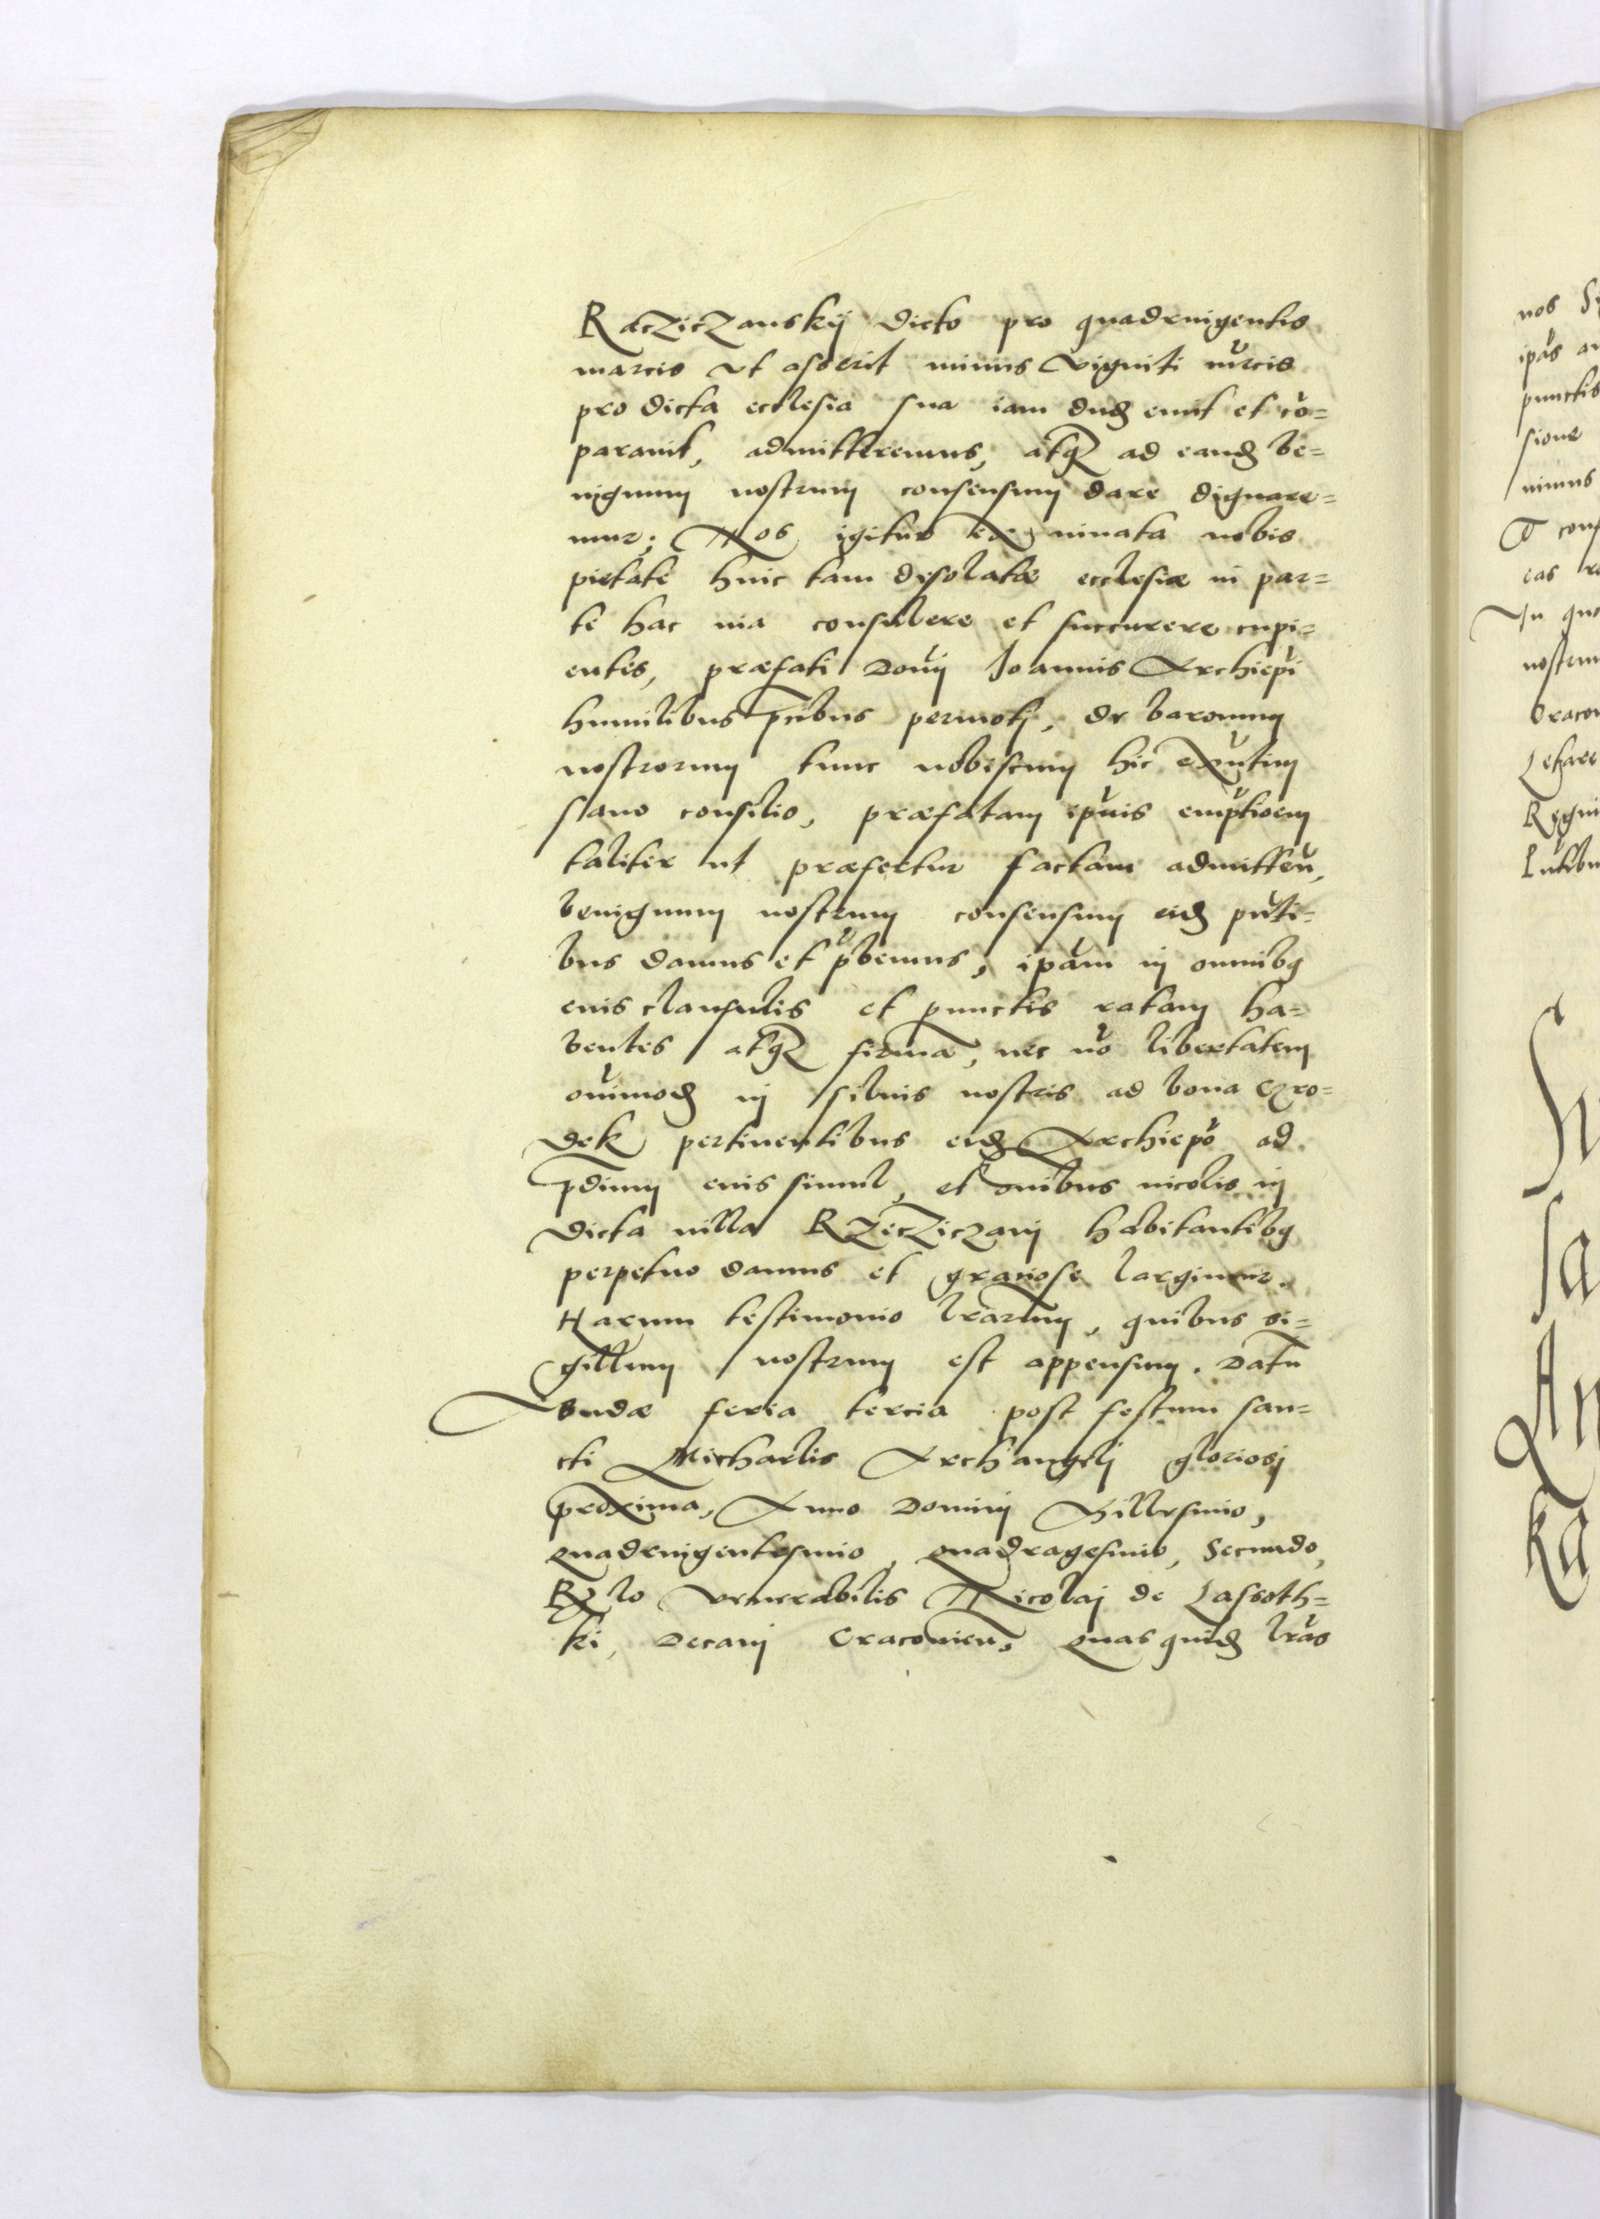 Raczicczanskij dicto pro quadringentis
marcis ut asserit minus viginti mrcis
pro dicta ecclesia sua iam dud emit et cō=
parauit, admitteremus, atq ad eand be=
nignum nostrum consensum dare dignare=
mur; Nos igitur ex innata nobis
pietate huic tam desolatæ ecclesiæ in par=
te hac uia consulere et succurere cupi=
entes, præfati Domj Joannis Archiepi
humilibus pcibus permotj, de baronum
nostrorum tunc nobiscum hic exntium
sano consilio, præfatam ipius emptioem
taliter ut præfertur factam admitten,
benignum nostrum consensum eid pnti=
bus damus et pbemus, ipam in omnibq
euis clausulis et punctis ratam ha=
bentes atq firmā, nec nō libertatem
oimod in siluis nostris ad bona Gro=
dek pertinentibus eid Archiepo ad
pdium euis simul, et oibus incolis in
dicta uilla Rzecziczanj habitantibq
perpetuo damus et graciose largimur.
Harum testimonio lrarum, quibus si=
gillum nostrum est appensum. Datū
Budæ feria tercia post festum san=
cti Michaelis Archangelj gloriosj
proxima, Anno Dominj Millesimo,
quadringentesimo, quadragesimo, Secundo,
Rlo Venerabilis Nicolaj de Lassoth=
ki, Decanj Cracovien, quas quid lras
nos
ipas
punctis
sione
nimus
cas
In quo
nostrum
Craco
Regni